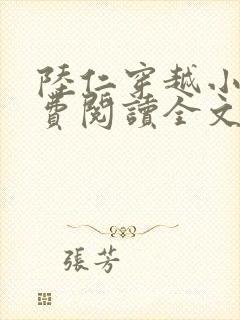 陸仁穿越小
費閱讀全文
張芳